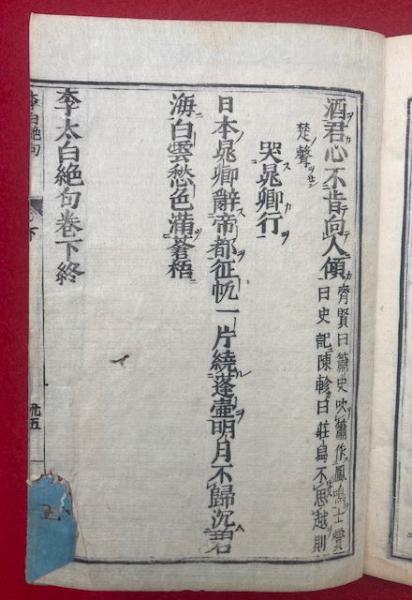 酒君心不肯向人傾
齊賢曰簫史吹簫作鳳鳴士贇
曰史記陳軫曰莊舄不思越則
楚聲
哭晁卿行
日本晁卿辭帝都征帆一片繞蓬壷明月不歸沉碧
海白雲愁色滿蒼梧
李太白絶句卷下終
李白絶句
卷下
卅五